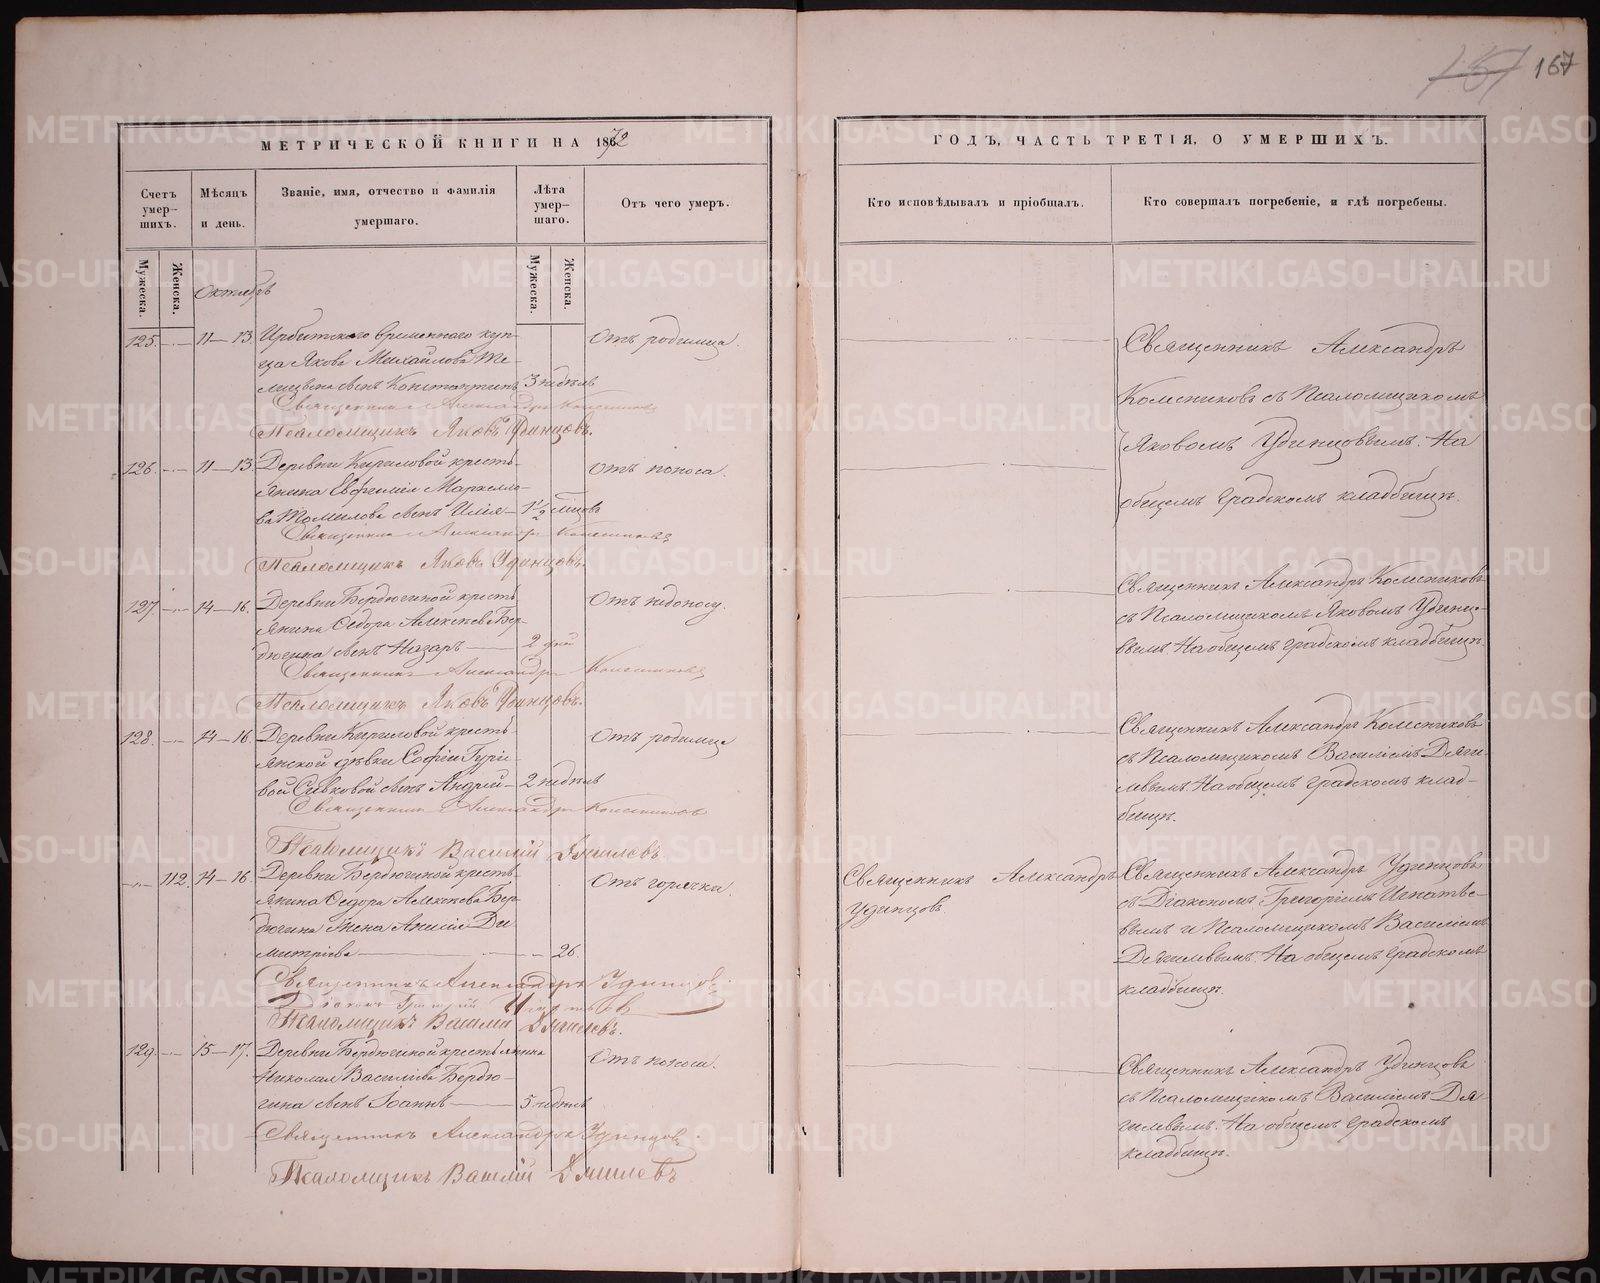 167
МЕТРИЧЕСКОЙ КНИГИ НА 1872
ГОДЪ, ЧАСТЬ ТРЕТІЯ, О УМЕРШИХЪ.
Счетъ умер-шихъ.
Мѣсяцъ и день.
Званіе, имя, отчество и фамилія умершаго.
Лѣта умер-шаго.
Отъ чего умеръ.
Кто исповѣдывалъ и пріобщалъ.
Кто совершалъ погребеніе, и гдѣ погребены.
Мужеска.
Женска.
Мужеска.
Женска.
Октябрь
125. 11–13. Ирбитскаго временнаго куп-
ца Якова Михайлова
сынъ Константинъ 3 недѣль
Отъ родимца.
Священникъ Александръ Колесниковъ
Псаломщикъ Яковъ Удинцовъ.
Священникъ Александръ
Колесниковъ съ Псаломщикомъ
Яковомъ Удинцовымъ. На
общемъ градскомъ кладбищѣ.
126. 11–13. Деревни Кириловой кресть-
янина Евфимія Маркелло-
ва Томилова сынъ Илія 1 1/2 мѣсяцовъ
Отъ поноса.
Священникъ Александръ Колесниковъ
Псаломщикъ Яковъ Удинцовъ.
127. 14–16. Деревни Бердюгиной кресть-
янина Ѳедора Алексѣева Бер-
дюгина сынъ Назаръ 2 дней
Отъ недоносу.
Священникъ Александръ Колесниковъ
Псаломщикъ Яковъ Удинцовъ.
Священникъ Александръ Колесниковъ
съ Псаломщикомъ Яковомъ Удинцо-
вымъ. На общемъ градскомъ кладбищѣ.
128. 14–16. Деревни Кириловой кресть-
янской дѣвки Софіи Гурі-
вой Сивковой сынъ Андрей 2 недѣль
Отъ родимца
Священникъ Александръ Колесниковъ
Псаломщикъ Василій Дягилевъ
Священникъ Александръ Колесниковъ
съ Псаломщикомъ Василіемъ Дяги-
левымъ. На общемъ градскомъ клад-
бищѣ.
112. 14–16. Деревни Бердюгиной кресть-
янина Ѳедора Алексѣева Бер-
дюгина жена Анисія Ди-
митріева 26.
Отъ горячки.
Священникъ Александръ
Удинцовъ.
Священникъ Александръ Удинцовъ
Діаконъ Григорій Игнатьевъ
Псаломщикъ Василій Дягилевъ.
Священникъ Александръ Удинцовъ
съ Діакономъ Григоріемъ Игнатье-
вымъ и Псаломщикомъ Василіемъ
Дягилевымъ. На общемъ градскомъ
кладбищѣ.
129. 15–17. Деревни Бердюгиной крестьянина
Николая Василіева Бердю-
гина сынъ Іоаннъ 5 недѣль
Отъ поноса.
Священникъ Александръ Удинцовъ
Псаломщикъ Василій Дягилевъ
Священникъ Александръ Удинцовъ
съ Псаломщикомъ Василіемъ Дя-
гилевымъ. На общемъ градскомъ
кладбищѣ.
METRIKI.GASO-URAL.RU